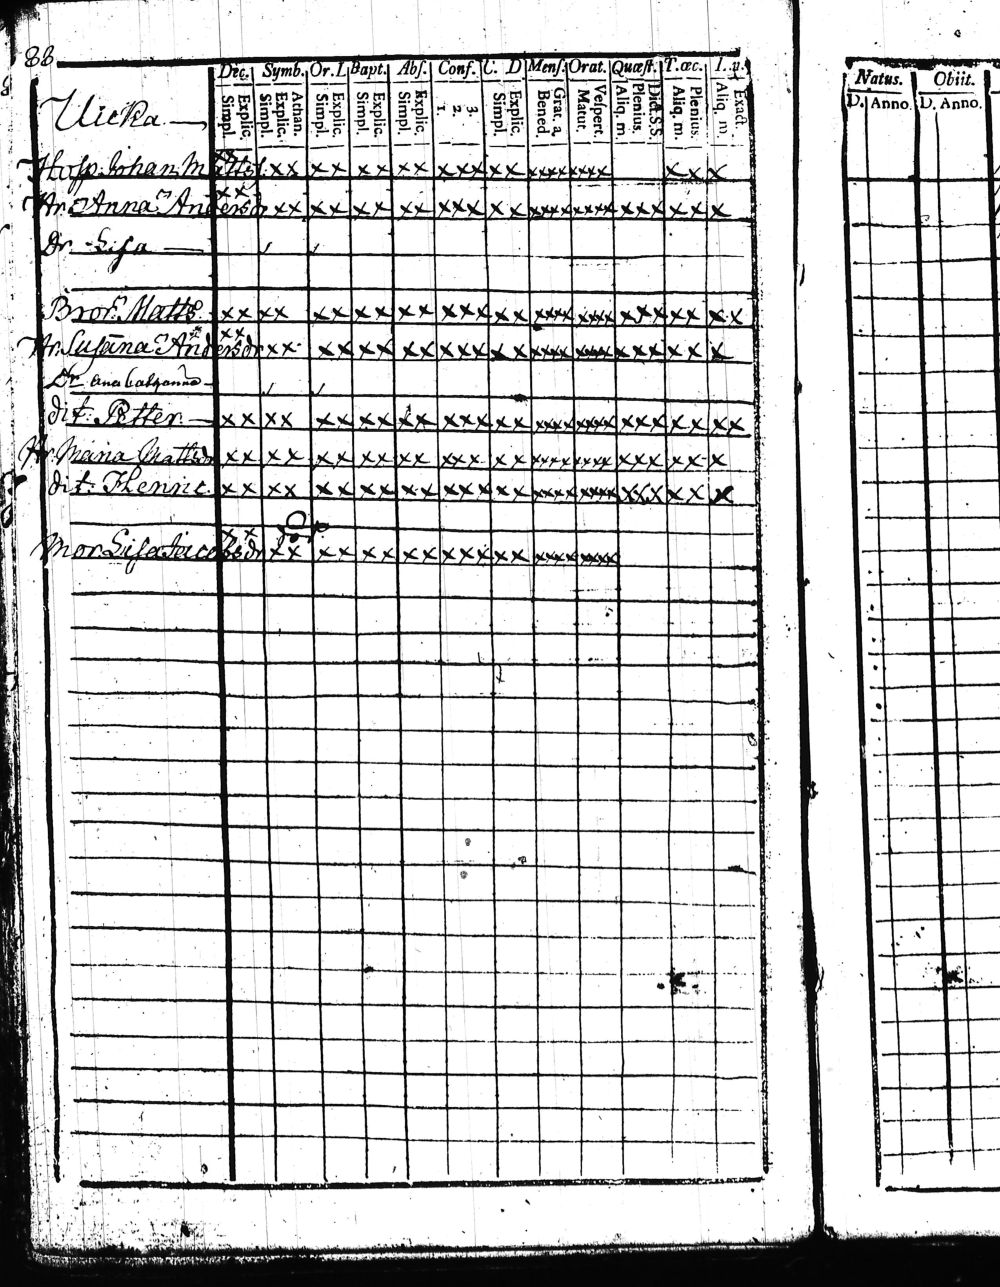 88
Dec. Symb. Or. L Bapt. Abs. Conf. C. D Mens. Orat. Quæst. T. œc. L. u.
Simpl. Explic. Simpl. Explic. Athan. Simpl. Explic. Simpl. Explic. Simpl. Explic. 1. 2. 3. Simpl. Explic. Bened. Grat. a. Matut. Vespert. Aliq. m. Plenius. Dict. S.S. Aliq. m. Plenius. Aliq. m. Exact.
Uicka
Husp. Johan Matts xx xx xx xx xx xxx xx xxxx xxxx xxx x
Hr. Anna Andersdr xx xx xx xx xx xxx xx xxxx xxxx xxx xx x
Dr Lisa
Bror. Matts xx xx xx xx xx xxx xx xxxx xxxx xxx xx xx
Hr. Susana Andersdr xx xx xx xx xx xxx xx xxxx xxxx xxx xx x
Dr
dit. Petter xx xx xx xx xx xxx xx xxxx xxxx xxx xx xx
Hr. Maria Mattsdr xx xx xx xx xx xxx xx xxxx xxxx xxx xx x
dit. Henric xx xx xx xx xx xxx xx xxxx xxxx xxx xx x
Mor Lisa Jacobsdr xx xx xx xx xx xxx xx xxxx xxxx
Natus. Obiit.
D. Anno. D. Anno.